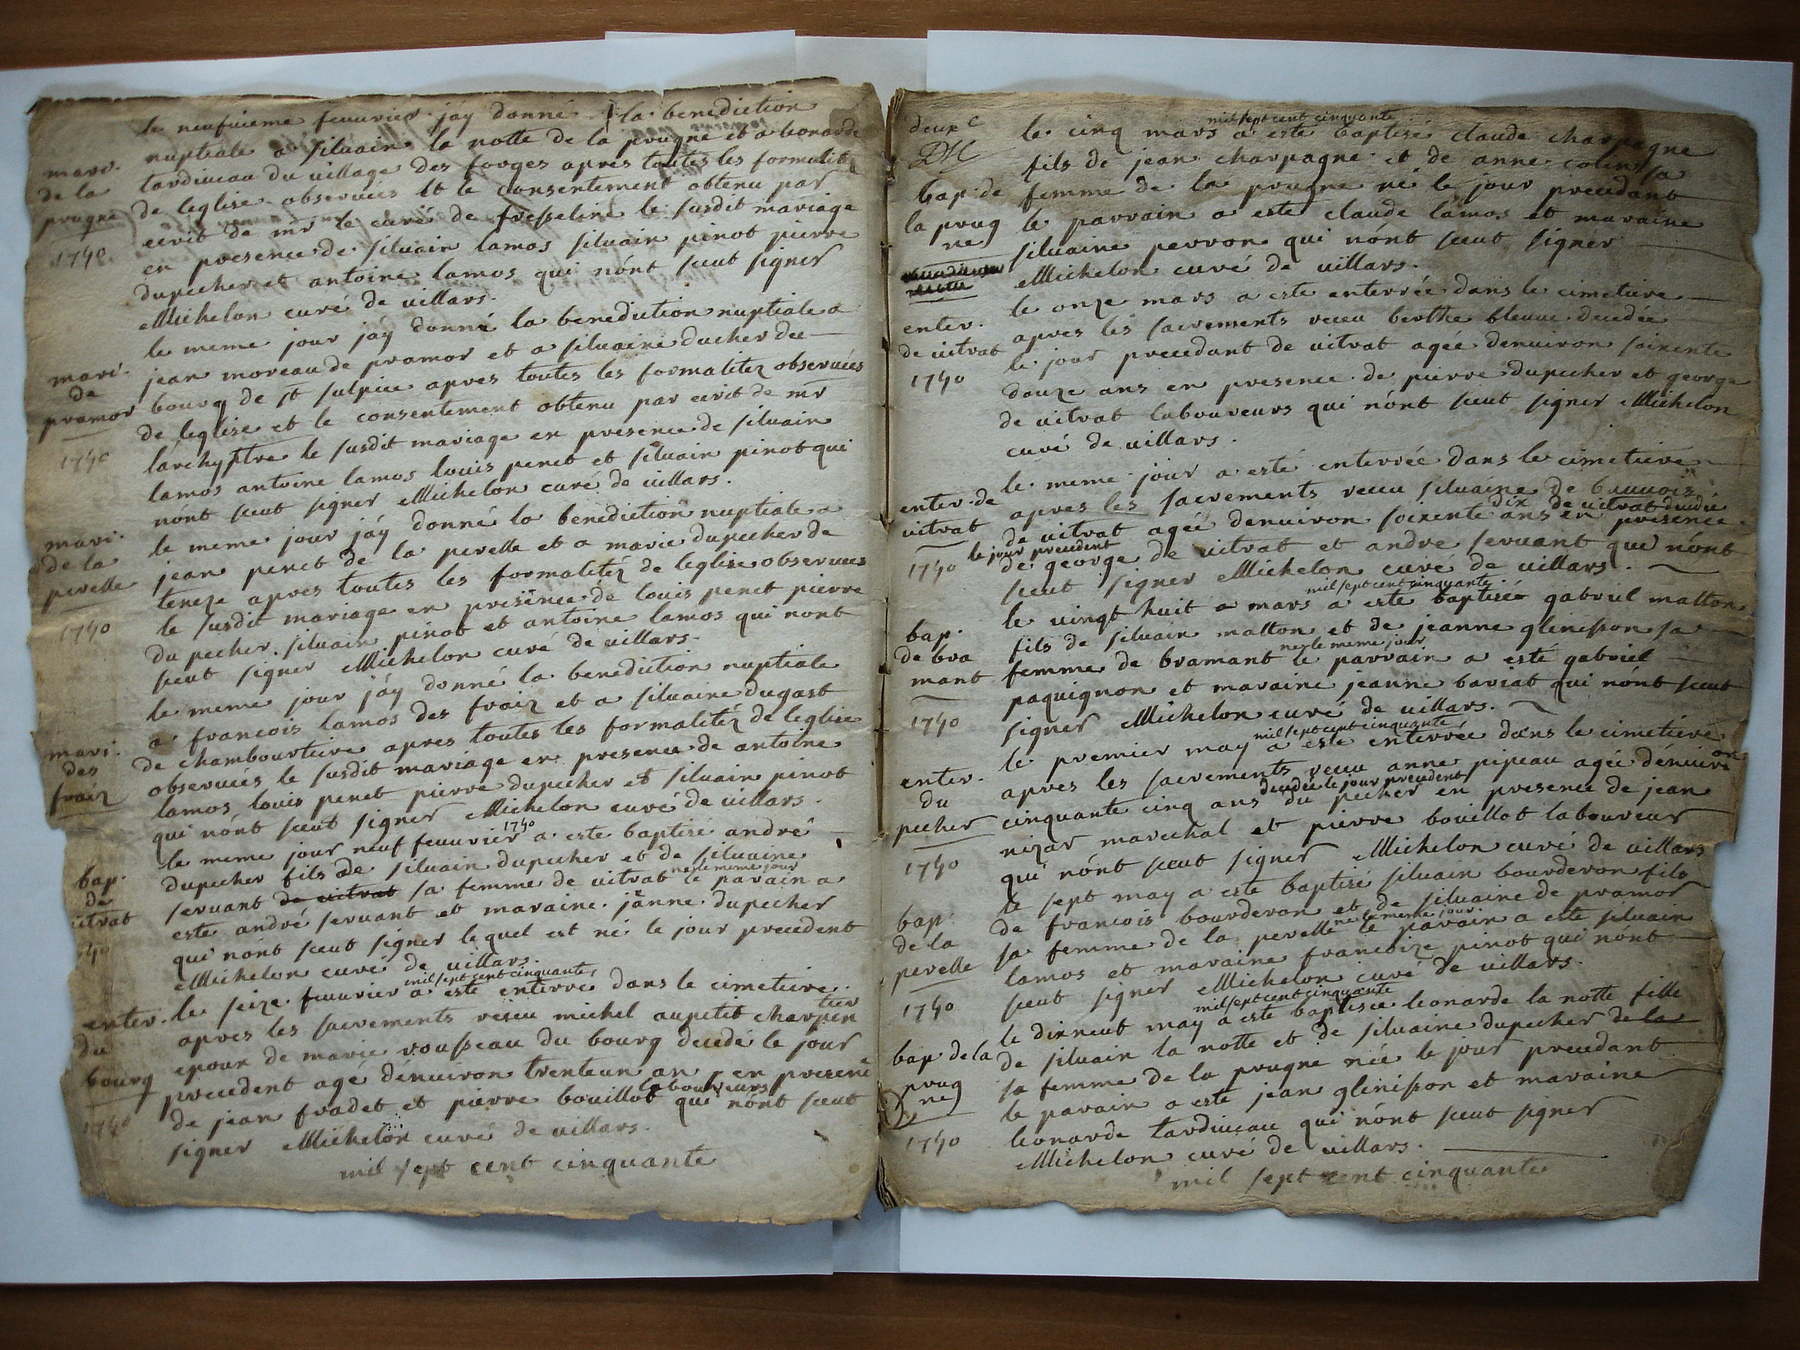 le neufuieme feuurier jáy donné la benediction
nuptiale a siluain la notte de la prugne et a leonarde
mari. de la prugne 1740
tardiueau du village des forges apres toutes les formalitez
de leglise obseruées et le consentement obtenu par
ecrit de mr le curé de fresseline le susdit mariage
en presence de siluain lamos siluain penot pierre
dupecher et antoine lamos qui nónt sceut signer
Michelon curé de uillars.
le meme jour jáy donné la benediction nuptiale a
mari. de pramor 1740
jean moreau de pramor et a siluaine ducher du
bourg de st sulpice apres toutes les formalitez obseruées
de leglise et le consentement obtenu par ecrit de mr
larchyptre le susdit mariage en presence de siluain
lamos antoine lamos louis penet et siluain pinot qui
nónt sceut signer Michelon curé de uillars.
le meme jour jáy donné la benediction nuptiale a
mari. de la perelle 1740
jean penet de la perelle et a marie dupecher de
teneze apres toutes les formalitéz de leglise obseruées
le susdit mariage en presence de louis penet pierre
du pecher siluain pinot et antoine lamos qui nont
sceut signer Michelon curé de uillars.
le meme jour jáy donné la benediction nuptiale
mari. des fraiz
a francois lamos des fraiz et a siluaine dugast
de chambourtiere apres toutes les formalitéz de leglise
obseruées le susdit mariage en presence de antoine
lamos louis penet pierre dupecher et siluain pinot
qui nónt sceut signer Michelon curé de uillars.
le meme jour neuf feuurier 1740 a este baptisé andré
bap. de uitrat 40
dupecher fils de siluain dupecher et de siluaine
seruant de uitrat sa femme de uitrat né le meme jour le parain a
este andré seruant et maraine jánne dupecher
qui nónt sceut signer lequel est né le jour precedent
Michelon curé de uillars.
enter. du bourg 1740
le seize feuurier mil sept cent cinquante a esté enterré dans le cimetiere
apres les sacrements reseu michel aupetit charpentier
epoux de marie rousseau du bourg decedé le jour
precedent agé denuiron trenteun an s en presence
de jean fradet et pierre bouillot laboureurs qui nónt sceut
signer Michelon curé de uillars.
mil sept cent cinquante
deuxe
le cinq mars mil sept cent cinquante a esté baptisé claude charpagne
fils de jean charpagne et de anne colin sa
bap. de la prugne
femme de la prugne né le jour precedant
le parrain a esté claude lámos et maraine
siluaine perron qui nónt sceut signer
Michelon curé de uillars.
le onze mars a este enterrée dans le cimetiere
enter. de uitrat 1740
apres les sacrements receu berthe bleuue decedée
le jour precedant de uitrat agée denuiron soixente
douze ans en presence de pierre dupecher et george
de uitrat laboureurs qui nónt sceut signer Michelon
curé de uillars.
le meme jour a esté enterrée dans le cimetiere
enter. de uitrat 1740
apres les sacrements receu siluaine de
de uitrat agée denuiron soixente dix ans de uitrat decedée en presence
le jour precedent de george de uitrat et andre seruant qui nónt
sceut signer Michelon curé de uillars.
le uingt huit a mars mil sept cent cinquante a este baptisé gabriel malton
bap. de bramant 1740
fils de siluain malton et de jeanne glenisson sa
femme de bramant né le meme jour le parrain a esté gabriel
paquignon et maraine jeanne barrat qui nont sceut
signer Michelon curé de uillars.
le premier may mil sept cent cinquante a esté enterrée dans le cimetiere
enter. du pecher 1740
apres les sacrements receu anne pipeau agée dénuiron
cinquante cinq ans decedée le jour precedent du pecher en presence de jean
nizar marechal et pierre bouillot laboureur
qui nónt sceut signer Michelon curé de uillars
le sept may a esté baptisé siluain bourderon fils
bap. de la perelle 1740
de francois bourderon et de siluaine de pramor
sa femme de la perelle né le meme jour le parain a este siluain
lamos et maraine francoize pinot qui nónt
sceut signer Michelon curé de uillars.
le dixneuf may mil sept cent cinquante a este baptisée leonarde la notte fille
bap. de la prugne 1740
de siluain la notte et de siluaine dupecher de la
sa femme de la prugne née le jour precedant
le parain a este jean glénisson et maraine
leonarde tardiueau qui nónt sceut signer
Michelon curé de uillars.
mil sept cent cinquante